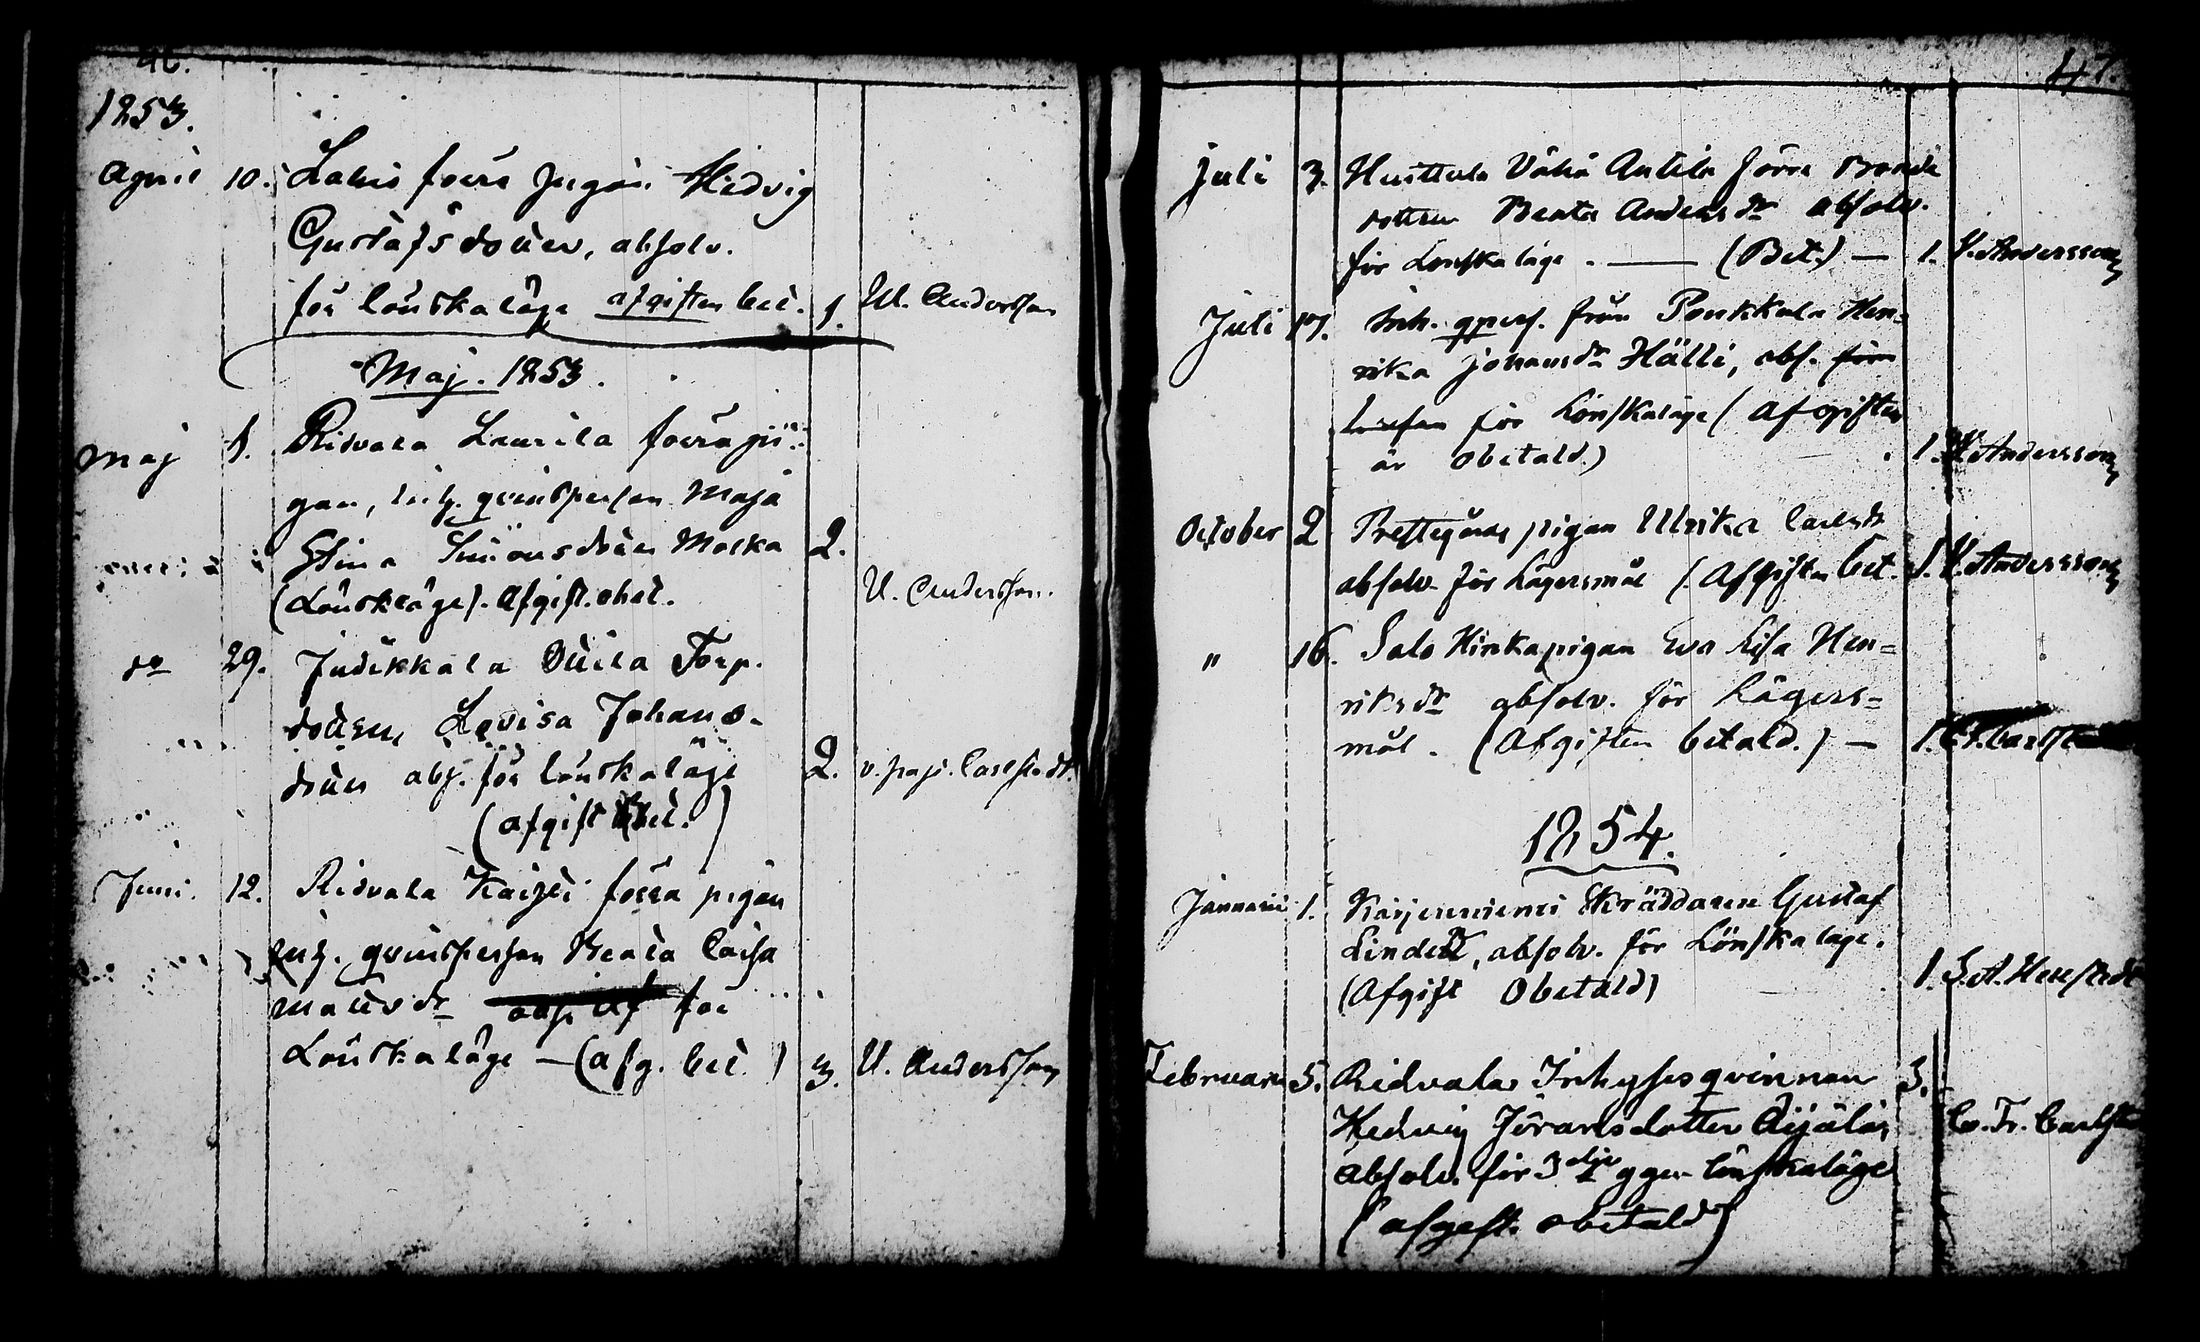 46.
1853.
April 10. Lahis förra pigan Hedvig
Gustafsdotter, absolv.
för lönskaläge afgiften bet. 1. U. Andersson
Maj. 1853.
Maj 1. Ridvala Laurila förra pi-
gan, inh. qvinspersen Maja
Stina Simonsdotter Morka 2.
(Lönskläge). Afgift. obet. U. Andersson.
do 29. Judikkala Ollila Torp.
dottren, Lovisa Johans-
dotter abs. för lönskaläge 2. v. past. Carlstedt.
(afgift obet.)
Juni. 12. Ridvala Kaitzi förra pigan
inh. qvinspersen Beata Caisa
Mattsdr för
Lönskaläge — (afg. bet.) 3. U. Andersson
47.
Juli 3. Huittula Vähä Antila förra Bonde
dottren Beata Andersdr absolv.
för Lönskaläge . — (Bet.) — 1. U. Andersson
Juli 17. Inh. qpers. från Penkkala Hen-
rika Johansdr Hälli, abs. för
för Lönskaläge (Afgiften
är obetald.) 1. U. Andersson
October 2 Prestegårds pigan Ulrika Carlsdr
absolv. för Lägersmål (Afgiften bet. 1. U. Andersson
" 16. Salo Hirska pigan Eva Lisa Hen-
riksdr absolv. för Lägers-
mål. (Afgiften betald.) — 1.
1854.
Januarii 1. Karjenniemi Skräddaren Gustaf
Lindell, absolv. för Lönskaläge.
(Afgift Obetald) 1.
Februari 5. Ridvala Inhyses qvinnan 3.
Hedvig Jöransdotter Äijälä, Co. Fr. Carlst
absolv. för 3dje ggen lönskaläge
(afgift. obetald)